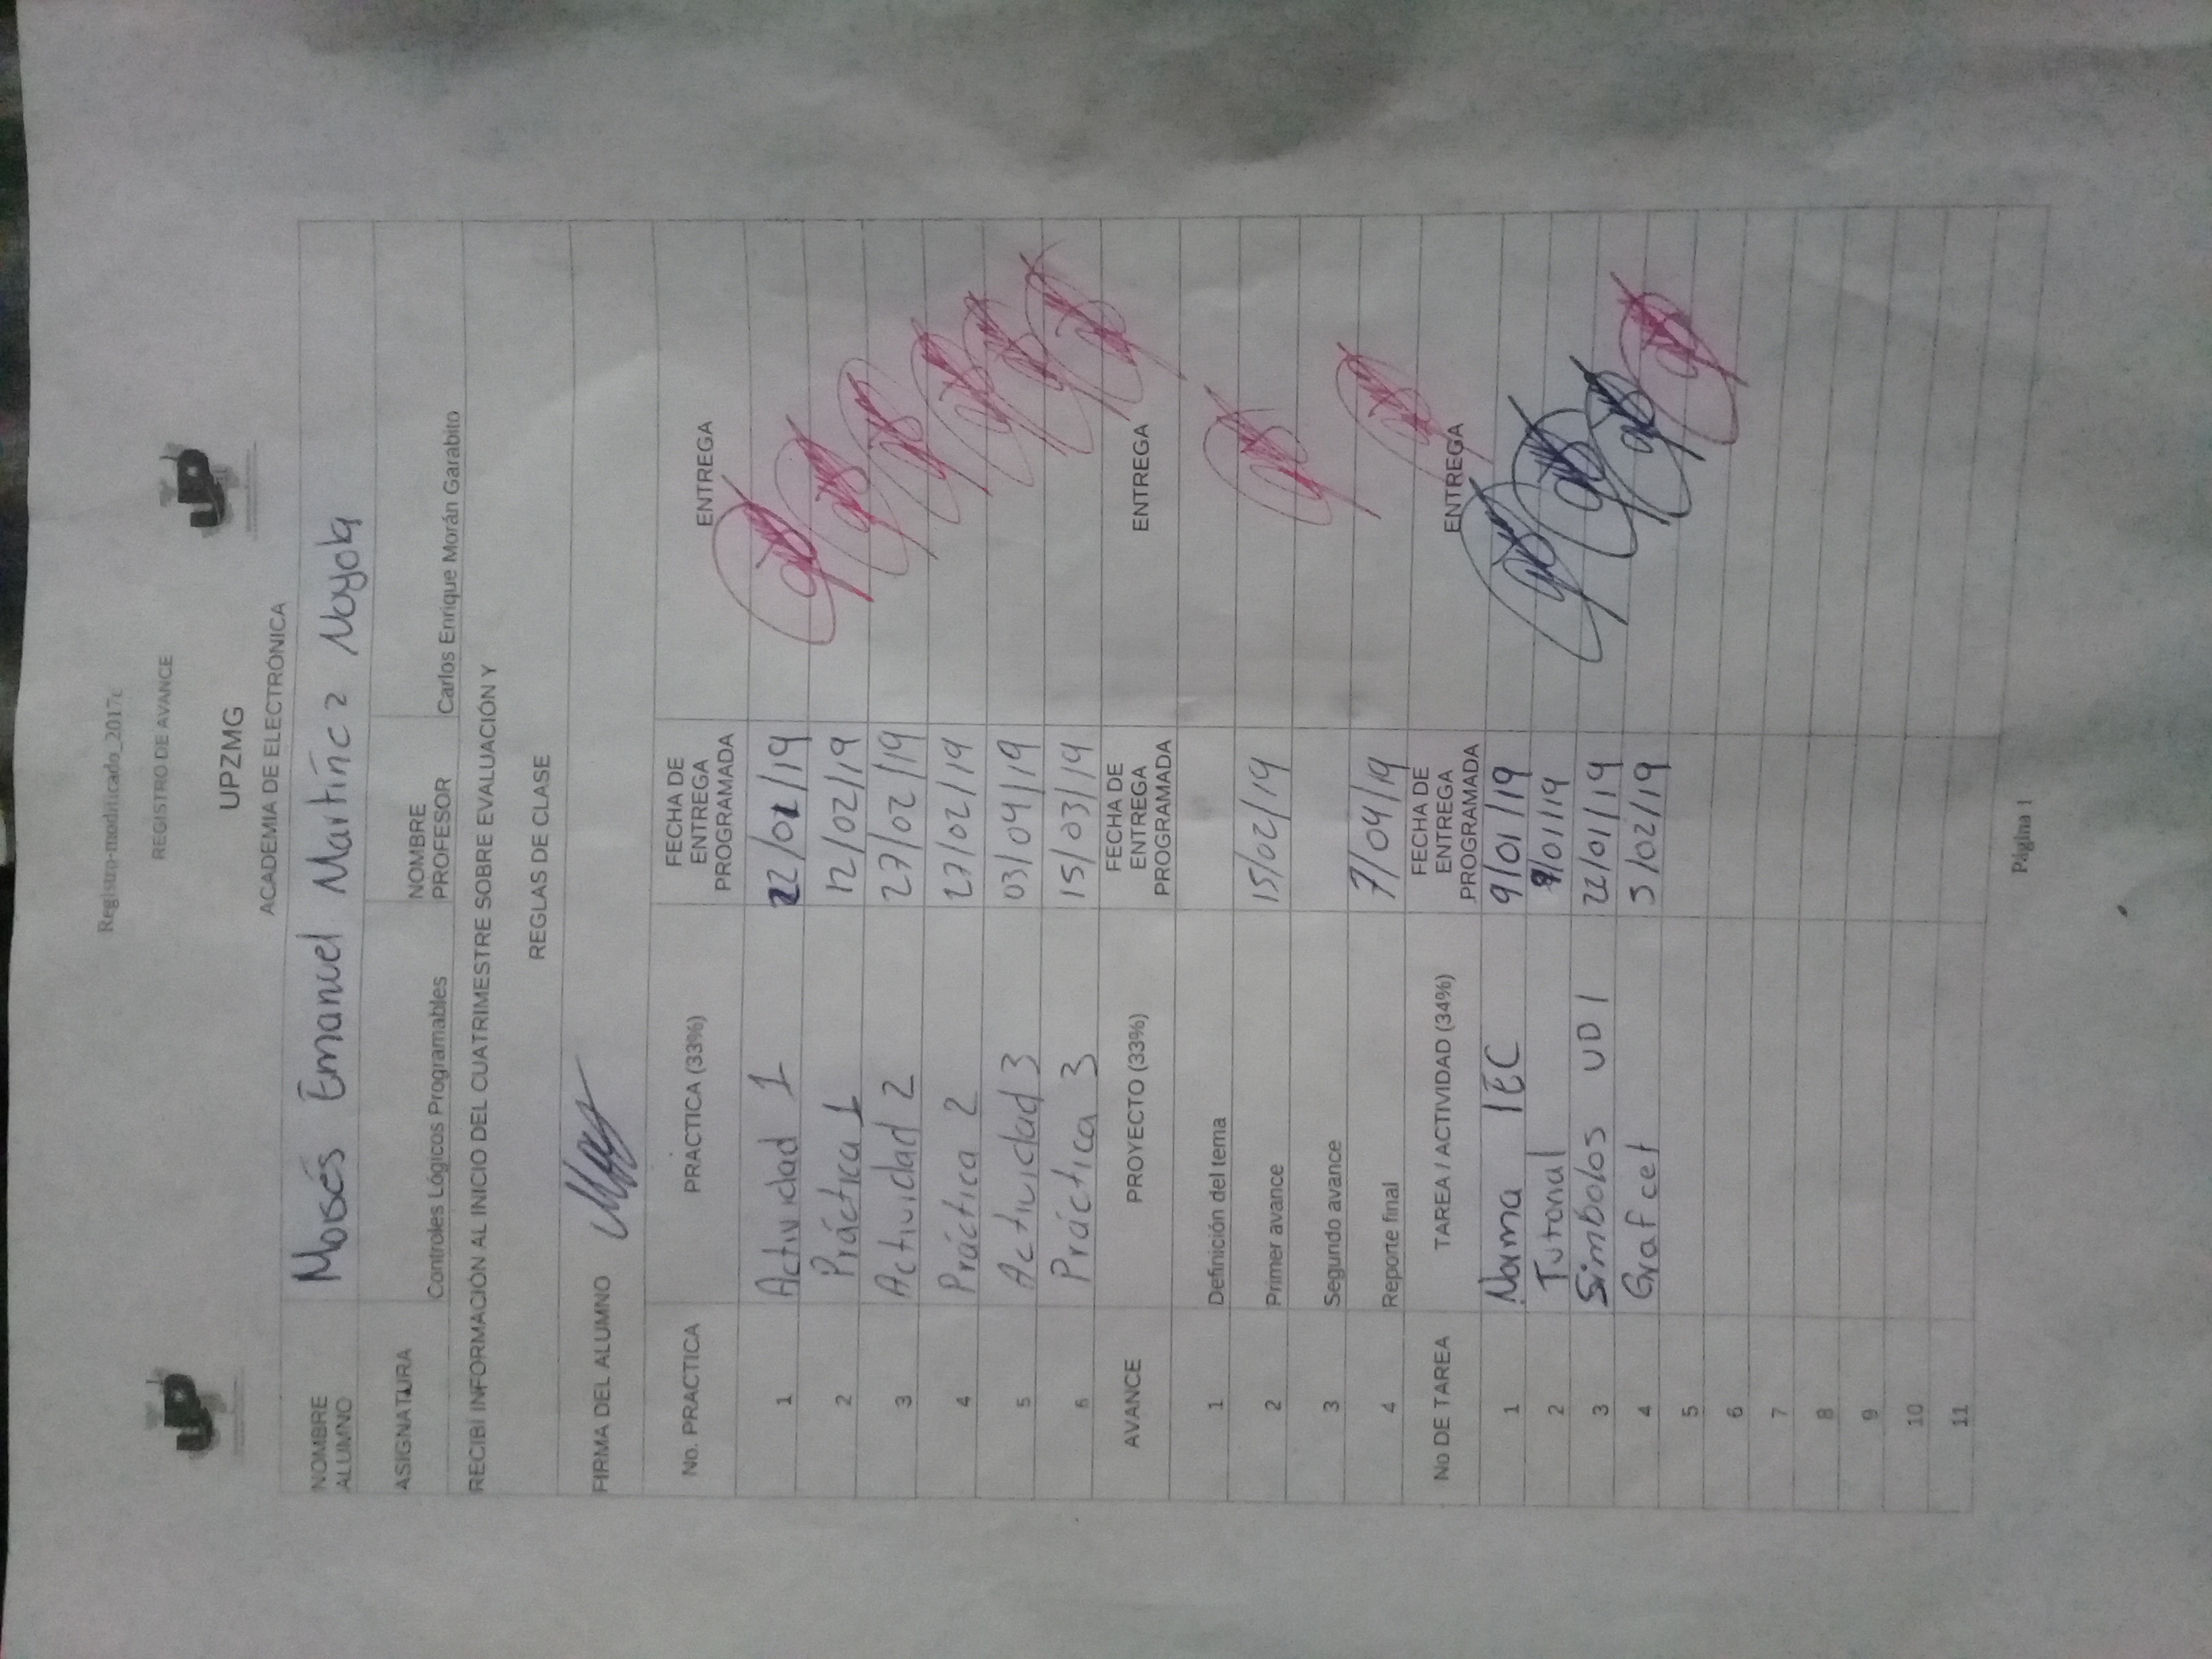 Registro-modificado_2017c
REGISTRO DE AVANCE
UP
UP
UPZMG
ACADEMIA DE ELECTRÓNICA
NOMBRE ALUMNO Moisés Emanuel Martínez Noyola
ASIGNATURA Controles Lógicos Programables NOMBRE PROFESOR Carlos Enrique Morán Garabito
RECIBÍ INFORMACIÓN AL INICIO DEL CUATRIMESTRE SOBRE EVALUACIÓN Y
REGLAS DE CLASE
FIRMA DEL ALUMNO
No. PRACTICA PRACTICA (33%) FECHA DE ENTREGA PROGRAMADA ENTREGA
1 Actividad 1 22/01/19
2 Práctica 1 12/02/19
3 Actividad 2 27/02/19
4 Práctica 2 27/02/19
5 Actividad 3 03/04/19
6 Práctica 3 15/03/19
AVANCE PROYECTO (33%) FECHA DE ENTREGA PROGRAMADA ENTREGA
1 Definición del tema
2 Primer avance 15/02/19
3 Segundo avance
4 Reporte final 7/04/19
No DE TAREA TAREA / ACTIVIDAD (34%) FECHA DE ENTREGA PROGRAMADA ENTREGA
1 Norma IEC 9/01/19
2 Tutorial 9/01/19
3 Simbolos UD1 22/01/19
4 Grafcet 5/02/19
5
6
7
8
9
10
11
Página 1